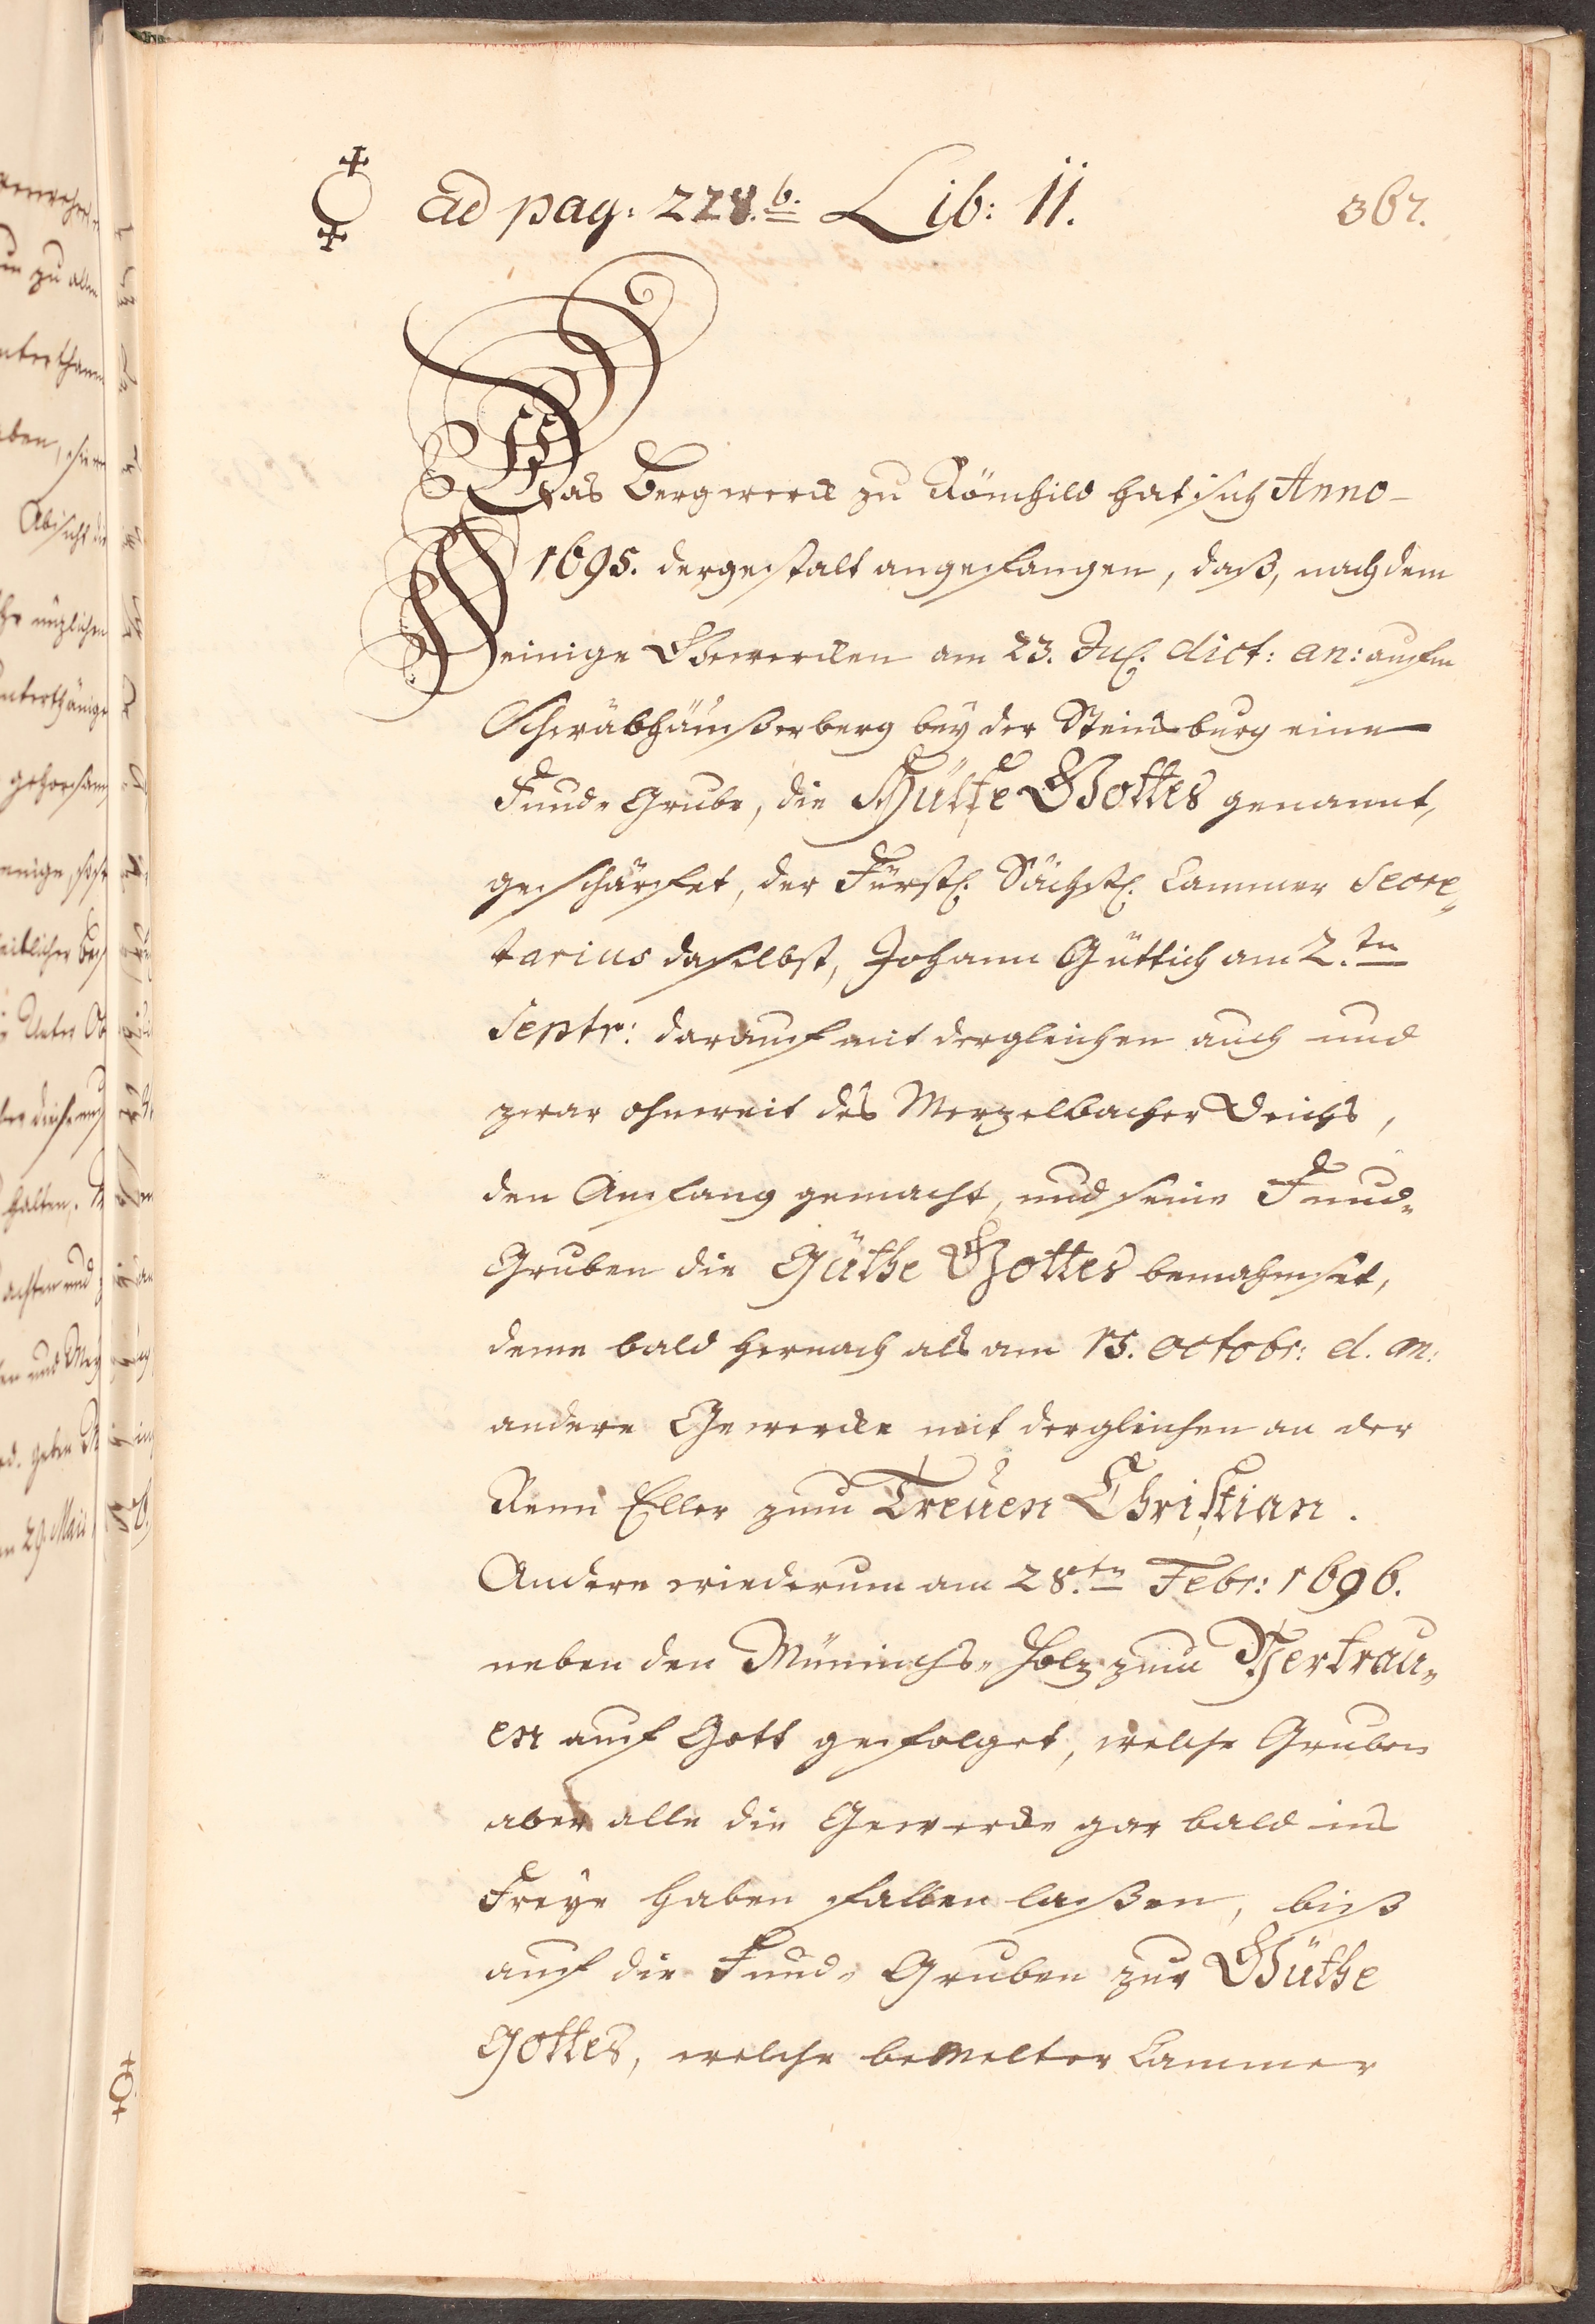 ad pag: 228.b. Lib: II.
367.
Das Bergwerck zu Römhild hat sich Anno
1695. dergestalt angefangen, daß, nachdem
einige Gewercken am 23. Jul. dict: an: aufm
Schwäbhäußerberg bey der Steinsburg eine
Fund-Grube, die Hülfe Gottes genannt,
geschürfet, der Fürstl. Sächßl. Cammer Secre„
tarius daselbst, Johann Güttich am 2.ten
Septr: darauf mit dergleichen auch und
zwar ohnweit des Merzelbacher Teichs,
den Anfang gemacht, und seine Fund„
Gruben die Güthe Gottes benahmset,
deme bald hernach als am 15. Octobr: d. an:
andere Gewercke mit dergleichen an der
Eller zum Treuen Christian.
Andere wiederum am 28.ten Febr: 1696.
neben den Münnichs„Holz zum Vertrau„
en auf Gott gefolget, welche Gruben
aber alle die Gewercke gar bald ins
Freye haben fallen laßen, biß
auf die Fund„Gruben zur Güthe
Gottes, welche bemelter Cammer